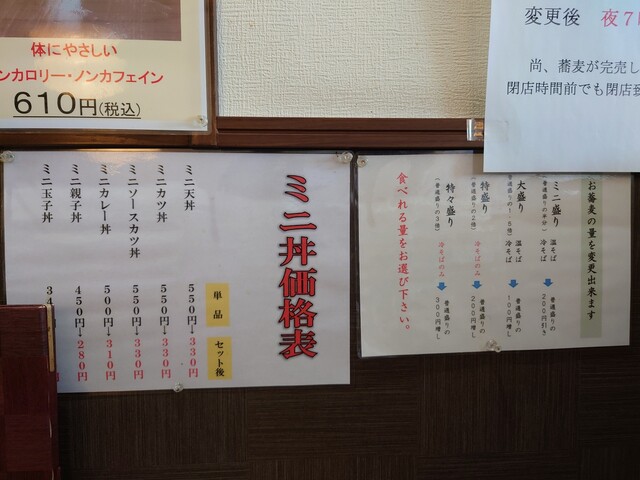 体にやさしい
ンカロリー・ノンカフェイン
610円(税込)
変更後 夜7
尚、蕎麦が完売し
閉店時間前でも閉店致
ミニ丼価格表
単品 セット後
ミニ天丼 550円→330円
ミニカツ丼 550円→330円
ミニソースカツ丼 550円→330円
ミニカレー丼 500円→310円
ミニ親子丼 450円→280円
ミニ玉子丼
お蕎麦の量を変更出来ます
ミニ盛り 温そば 冷そば 200円引き
(普通盛りの半分)
大盛り 温そば 冷そば 普通盛りの100円増し
普通盛りの1.5倍)
特盛り 冷そばのみ 普通盛りの200円増し
(普通盛りの2倍)
特々盛り 冷そばのみ 普通盛りの300円増し
(普通盛りの3倍)
食べれる量をお選び下さい。